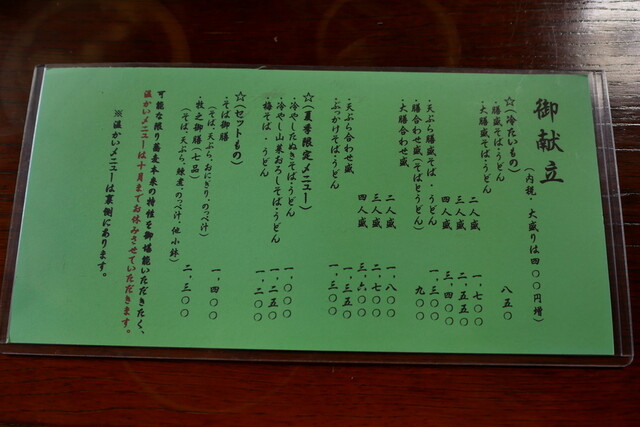 御献立
(内税・大盛りは四〇〇円増)
☆(冷たいもの)
・膳盛そば・うどん　八五〇
・大膳盛そば・うどん
二人盛　一、七〇〇
三人盛　二、五五〇
四人盛　三、四〇〇
・天ぷら膳盛そば・うどん　一、三〇〇
・膳合わせ盛(そばとうどん)　九〇〇
・大膳合わせ盛
二人盛　一、八〇〇
三人盛　二、七〇〇
四人盛　三、六〇〇
・天ぷら合わせ盛　一、三五〇
・ぶっかけそば・うどん　一、三〇〇
☆(夏季限定メニュー)
・冷やしたぬきそば・うどん　一、〇〇〇
・冷やし山菜おろしそば・うどん　一、二五〇
・梅そば・うどん　一、二〇〇
☆(セットもの)
・そば御膳　一、四〇〇
(そば、天ぷら、おにぎり、のっぺ汁)
・牧之御膳(七品)　二、三〇〇
(そば、天ぷら、煉麦、のっぺ汁、他小鉢)
可能な限り蕎麦本来の特性を御堪能いただきたく、
温かいメニューは十月までお休みさせていただきます。
※温かいメニューは裏側にあります。